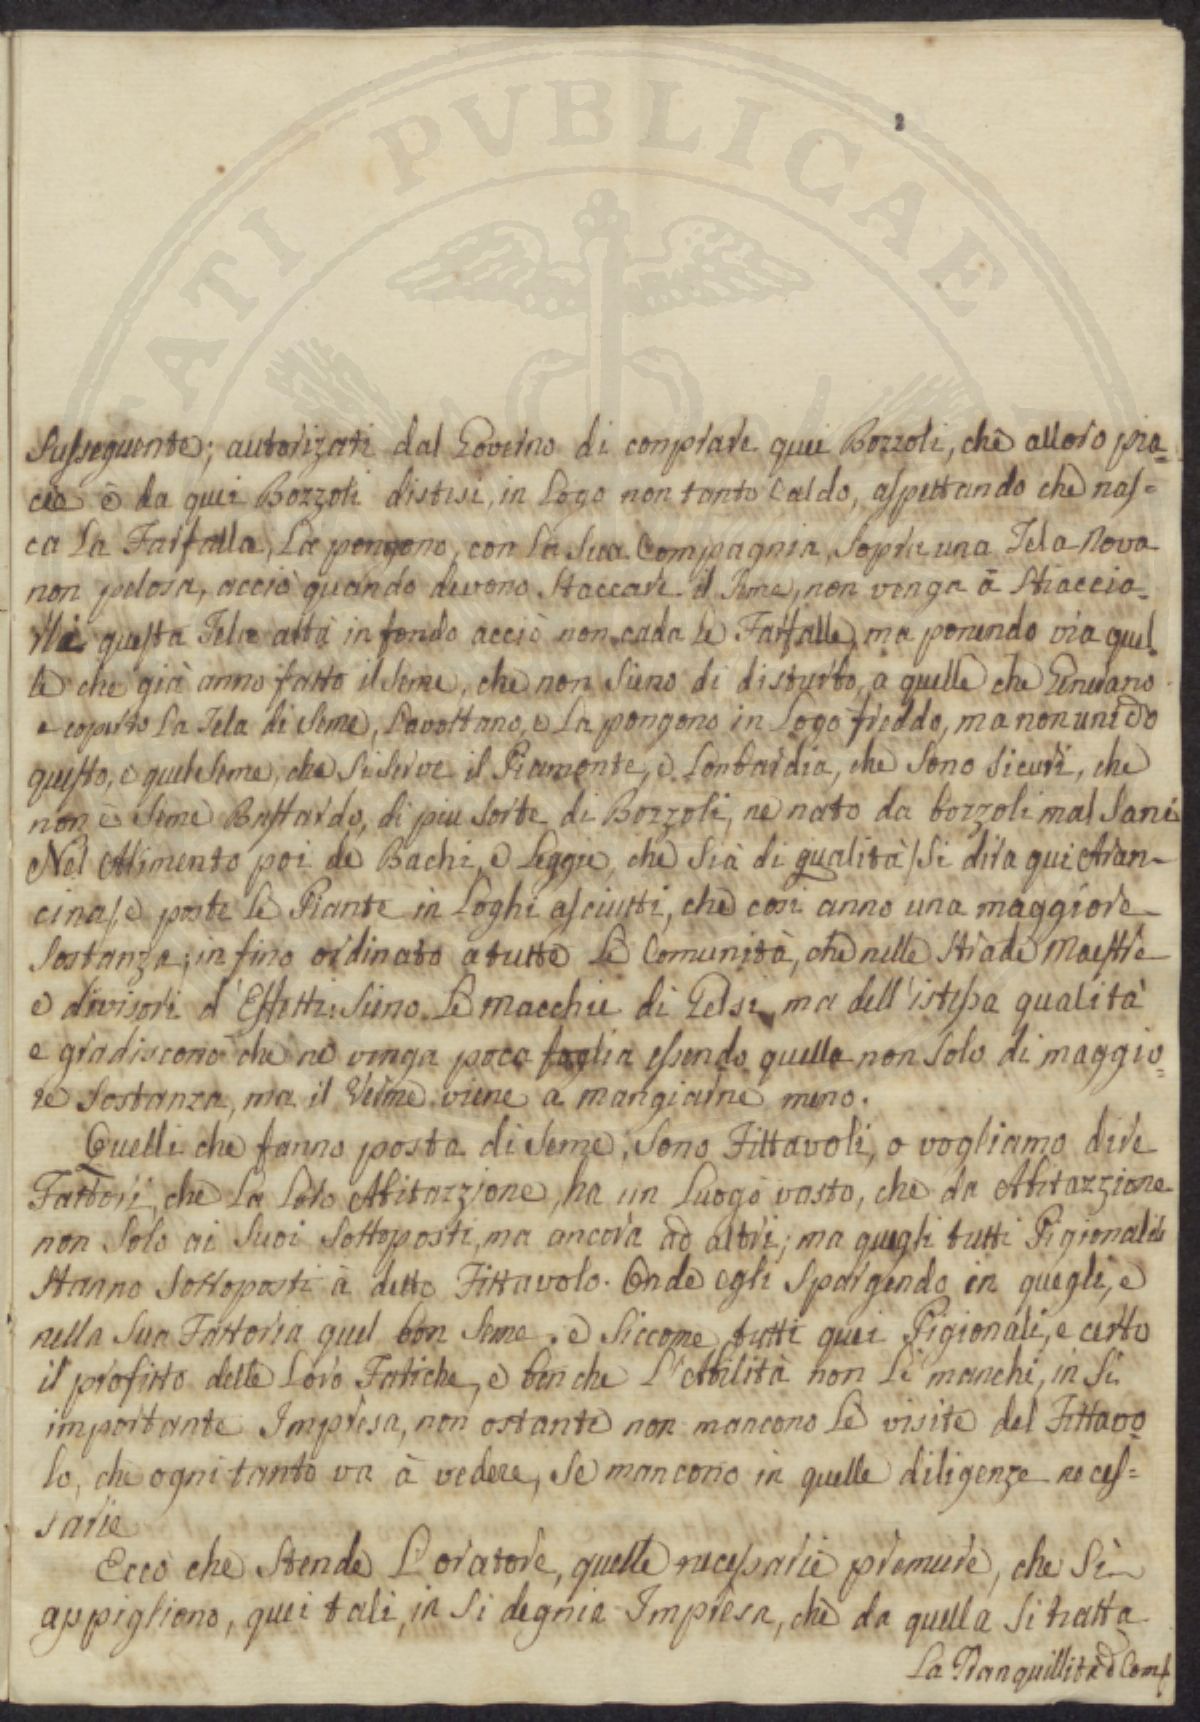 PUBLICAE
2
susseguente; autorizati dal Governo di comprare quei Bozzoli, che alloro pia=
cie è da quei Bozzoli distesi, in Logo non tanto caldo, aspettando che nas=
ca la Farfalla, La pongono, con la sua Compagnia, sopra una Tela nova
non pelosa, acciò quando devono staccare il seme, non venga à stiaccia=
questa Tela atta in fondo acciò non cada le Farfalle, ma ponendo via quel=
le che già anno fatto il seme, che non sieno di disturbo, a quelle che Generano
e coperto La Tela di seme, Lavoltano, e La pongono in Logo freddo, ma non umido
questo, e quel seme, che si serve il Piamonte, e Lombardia, che sono sicuri, che
non è seme Bastardo, di piu sorte di Bozzoli, ne nato da bozzoli mal sani
Nel Alimento poi de Bachi, e Legge, che sia di qualità / si dira qui Aran-
cina /, e poste le Piante in Loghi asciutti, che cosi anno una maggiore
sostanza; in fino ordinato a tutte Le Comunità, che nelle strade Maestre
e divisori d'Effetti: sieno Le Macchie di Gelsi, ma dell'istessa qualità
e gradiscono che ne venga poca foglia essendo quella non solo di maggio=
re sostanza, ma il Verme viene a mangiarne meno.
Quelli che fanno posta di seme, sono Fittavoli, o vogliamo dire
Fattori, che La Loro Abitazzione, ha un Luogo vasto, che da Abitazzione
non solo ai suoi sottoposti, ma ancora ad altri; ma quegli tutti Pigionali
stanno sottoposti à detto Fittavolo. Onde egli spargendo in quegli, e
nella sua Fattoria quel bon seme, e siccome tutti quei Pigionali, e certo
il profitto delle Loro Fatiche, e ben che L'Abilità non Le manchi, in si
importante Impresa, non ostante non mancono Le visite del Fittavo=
lo, che ogni tanto va à vedere, se mancono in quelle diligenze neces=
sarie
Ecco che stende L'oratore, quelle necessarie premure, che si
appigliono, quei tali, in si degnia Impresa, che da quella si tratta
La Tranquillità